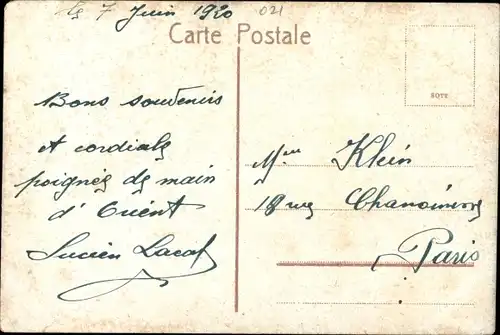 le 7 Juin 1920 021
Carte Postale
Bons souvenirs
et cordiale
poignée de main
d'Orient
Lucien
Klein
18 rue Chanoinesse
Paris